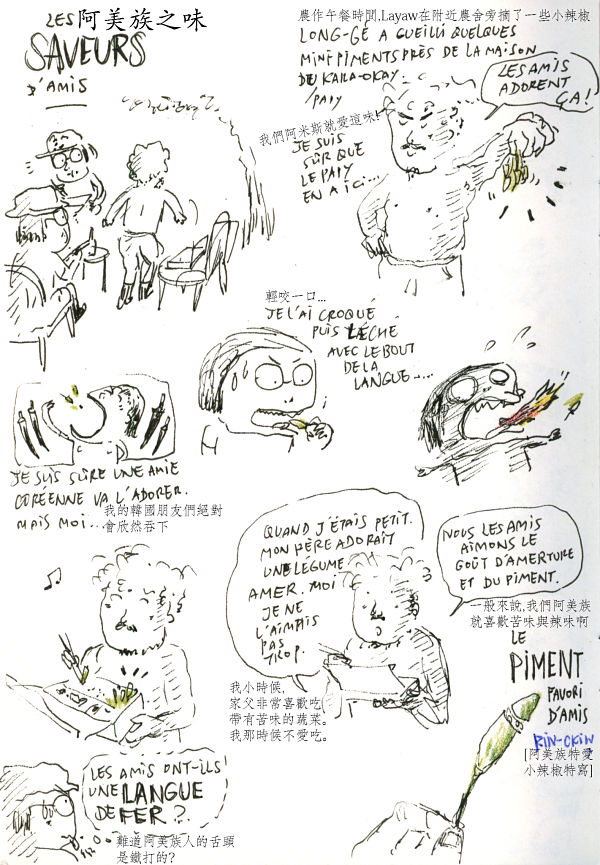 LES 阿美族之味
SAVEURS
D'AMIS
農作午餐時間, Layaw在附近農舍旁摘了一些小辣椒
LONG-GÉ A CUEILLI QUELQUES
MINI PIMENTS PRÈS DE LA MAISON
DE KARA-OKAY.
PAPY
LES AMIS
ADORENT
ÇA!
我們阿米斯就愛這味!
JE SUIS
SÛR QUE
LE PAPY
EN A ICI...
輕咬一口...
JE L'AI CROQUÉ
PUIS LÉCHÉ
AVEC LE BOUT
DE LA
LANGUE.....
JE SUIS SÛRE UNE AMIE
CORÉENNE VA L'ADORER.
MAIS MOI...
我的韓國朋友們絕對
會欣然吞下
QUAND J'ÉTAIS PETIT.
MON PÈRE ADORAIT
UNE LÉGUME
AMER. MOI
JE NE
L'AIMAIS
PAS
TROP.
我小時候,
家父非常喜歡吃
帶有苦味的蔬菜。
我那時候不愛吃。
NOUS LES AMIS
AIMONS LE
GOÛT D'AMERTURE
ET DU PIMENT.
一般來說,我們阿美族
就喜歡苦味與辣味啊
LE
PIMENT
FAVORI
D'AMIS
RIN-CKIN
[阿美族特愛
小辣椒特寫]
LES AMIS ONT-ILS
UNE LANGUE
DE FER?
難道阿美族人的舌頭
是鐵打的?